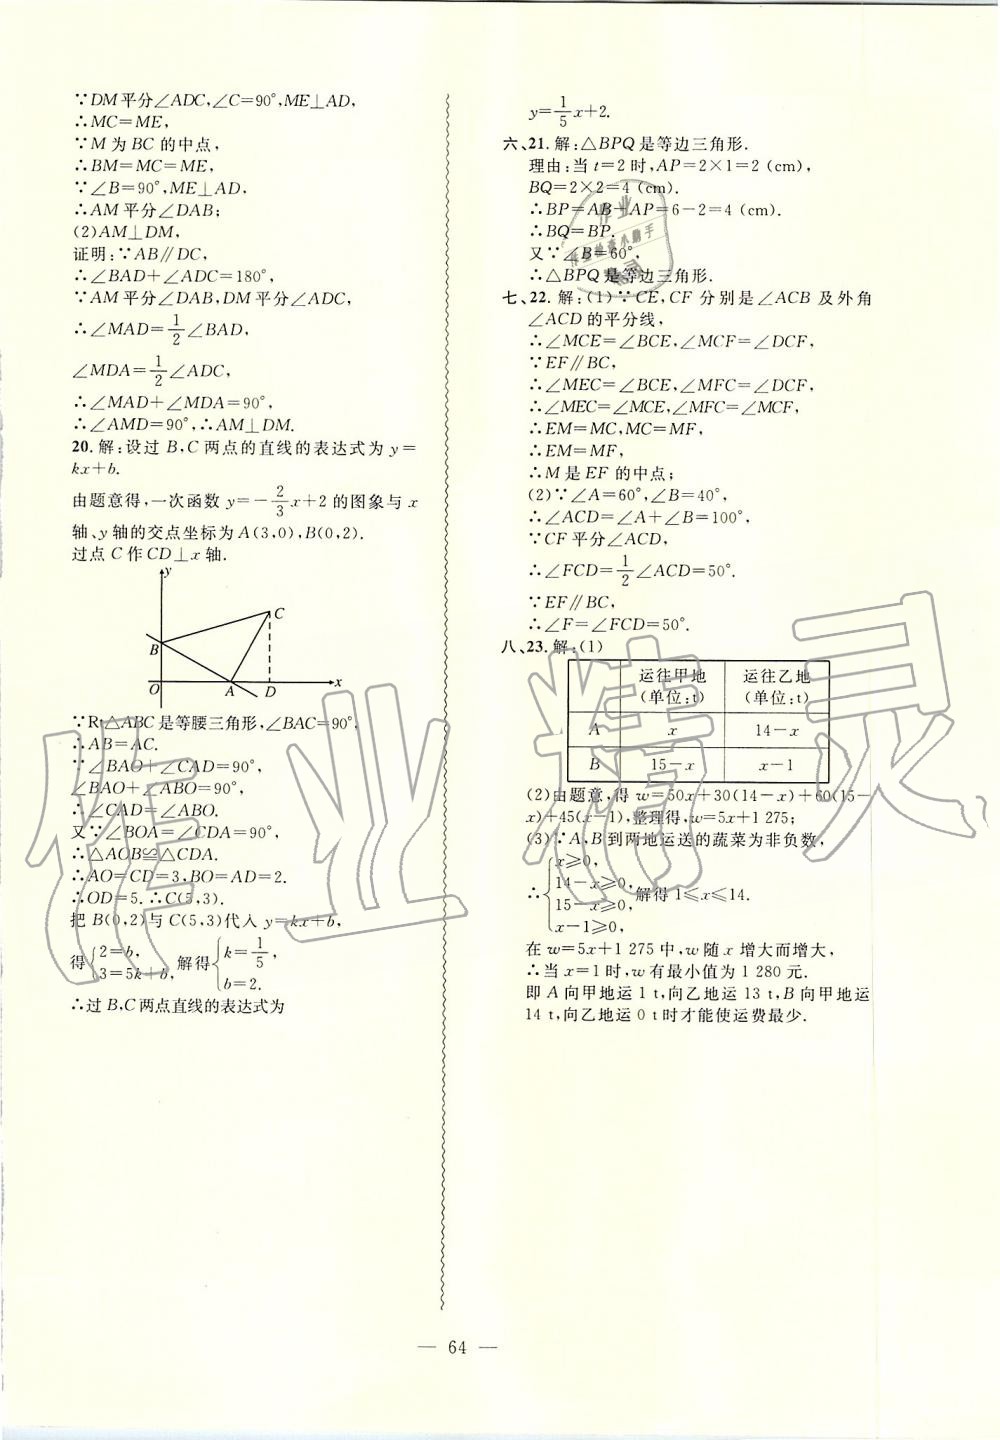 ∵DM平分∠ADC,∠C=90°,ME⊥AD,
∴MC=ME,
∵M 为 BC 的中点,
∴BM=MC=ME,
∵∠B=90°,ME⊥AD,
∴AM平分∠DAB;
(2)AM⊥DM,
证明:∵AB∥DC,
∴∠BAD+∠ADC=180°,
∵AM平分∠DAB,DM平分∠ADC,
∴∠MAD=1/2∠BAD,
∠MDA=1/2∠ADC,
∴∠MAD+∠MDA=90°,
∴∠AMD=90°,∴AM⊥DM.
20.解:设过 B,C 两点的直线的表达式为 y=
kx+b.
由题意得,一次函数 y=-2/3x+2 的图象与 x
轴、y 轴的交点坐标为 A(3,0),B(0,2).
过点 C 作 CD⊥x 轴.
y
C
B
O A D x
∵Rt△ABC是等腰三角形,∠BAC=90°,
∴AB=AC.
∵∠BAO+∠CAD=90°,
∠BAO+∠ABO=90°,
∴∠CAD=∠ABO.
又∵∠BOA=∠CDA=90°,
∴△AOB≌△CDA.
∴AO=CD=3,BO=AD=2.
∴OD=5.∴C(5,3).
把 B(0,2)与 C(5,3)代入 y=kx+b,
得{2=b, 3=5k+b, 解得{k=1/5, b=2.
∴过 B,C 两点直线的表达式为
y=1/5x+2.
六、21.解:△BPQ是等边三角形.
理由:当 t=2 时,AP=2×1=2(cm),
BQ=2×2=4(cm).
∴BP=AB-AP=6-2=4(cm).
∴BQ=BP.
又∵∠B=60°,
∴△BPQ是等边三角形.
七、22.解:(1)∵CE,CF 分别是∠ACB 及外角
∠ACD的平分线,
∴∠MCE=∠BCE,∠MCF=∠DCF,
∵EF∥BC,
∴∠MEC=∠BCE,∠MFC=∠DCF,
∴∠MEC=∠MCE,∠MFC=∠MCF,
∴EM=MC,MC=MF,
∴EM=MF,
∴M 是 EF 的中点;
(2)∵∠A=60°,∠B=40°,
∴∠ACD=∠A+∠B=100°,
∵CF平分∠ACD,
∴∠FCD=1/2∠ACD=50°.
∵EF∥BC,
∴∠F=∠FCD=50°.
八、23.解:(1)
运往甲地(单位:t) 运往乙地(单位:t)
A x 14-x
B 15-x x-1
(2)由题意,得 w=50x+30(14-x)+60(15-
x)+45(x-1),整理得,w=5x+1 275;
(3)∵A,B到两地运送的蔬菜为非负数,
∴{x≥0, 14-x≥0, 15-x≥0, x-1≥0, 解得 1≤x≤14.
在 w=5x+1 275 中,w 随 x 增大而增大,
∴当 x=1时,w有最小值为 1 280 元.
即 A 向甲地运 1 t,向乙地运 13 t,B 向甲地运
14 t,向乙地运 0 t时才能使运费最少.
— 64 —
作业精灵